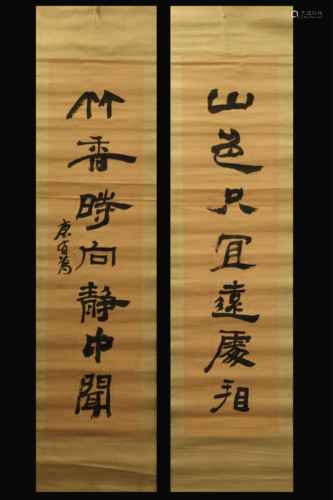 山色只宜遠處看
竹香時向靜中聞
康有為